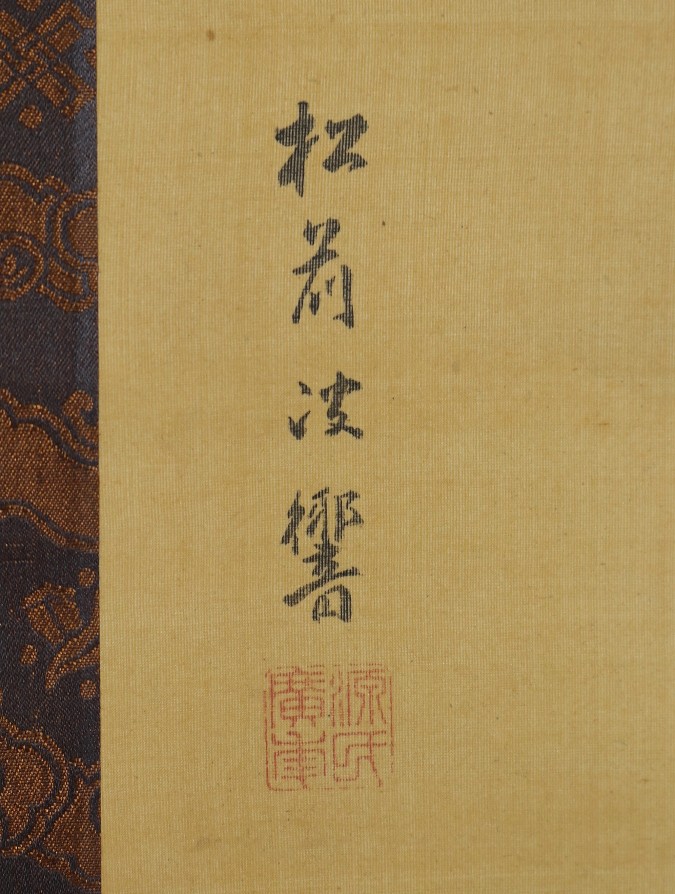 松前波響
源氏廣年